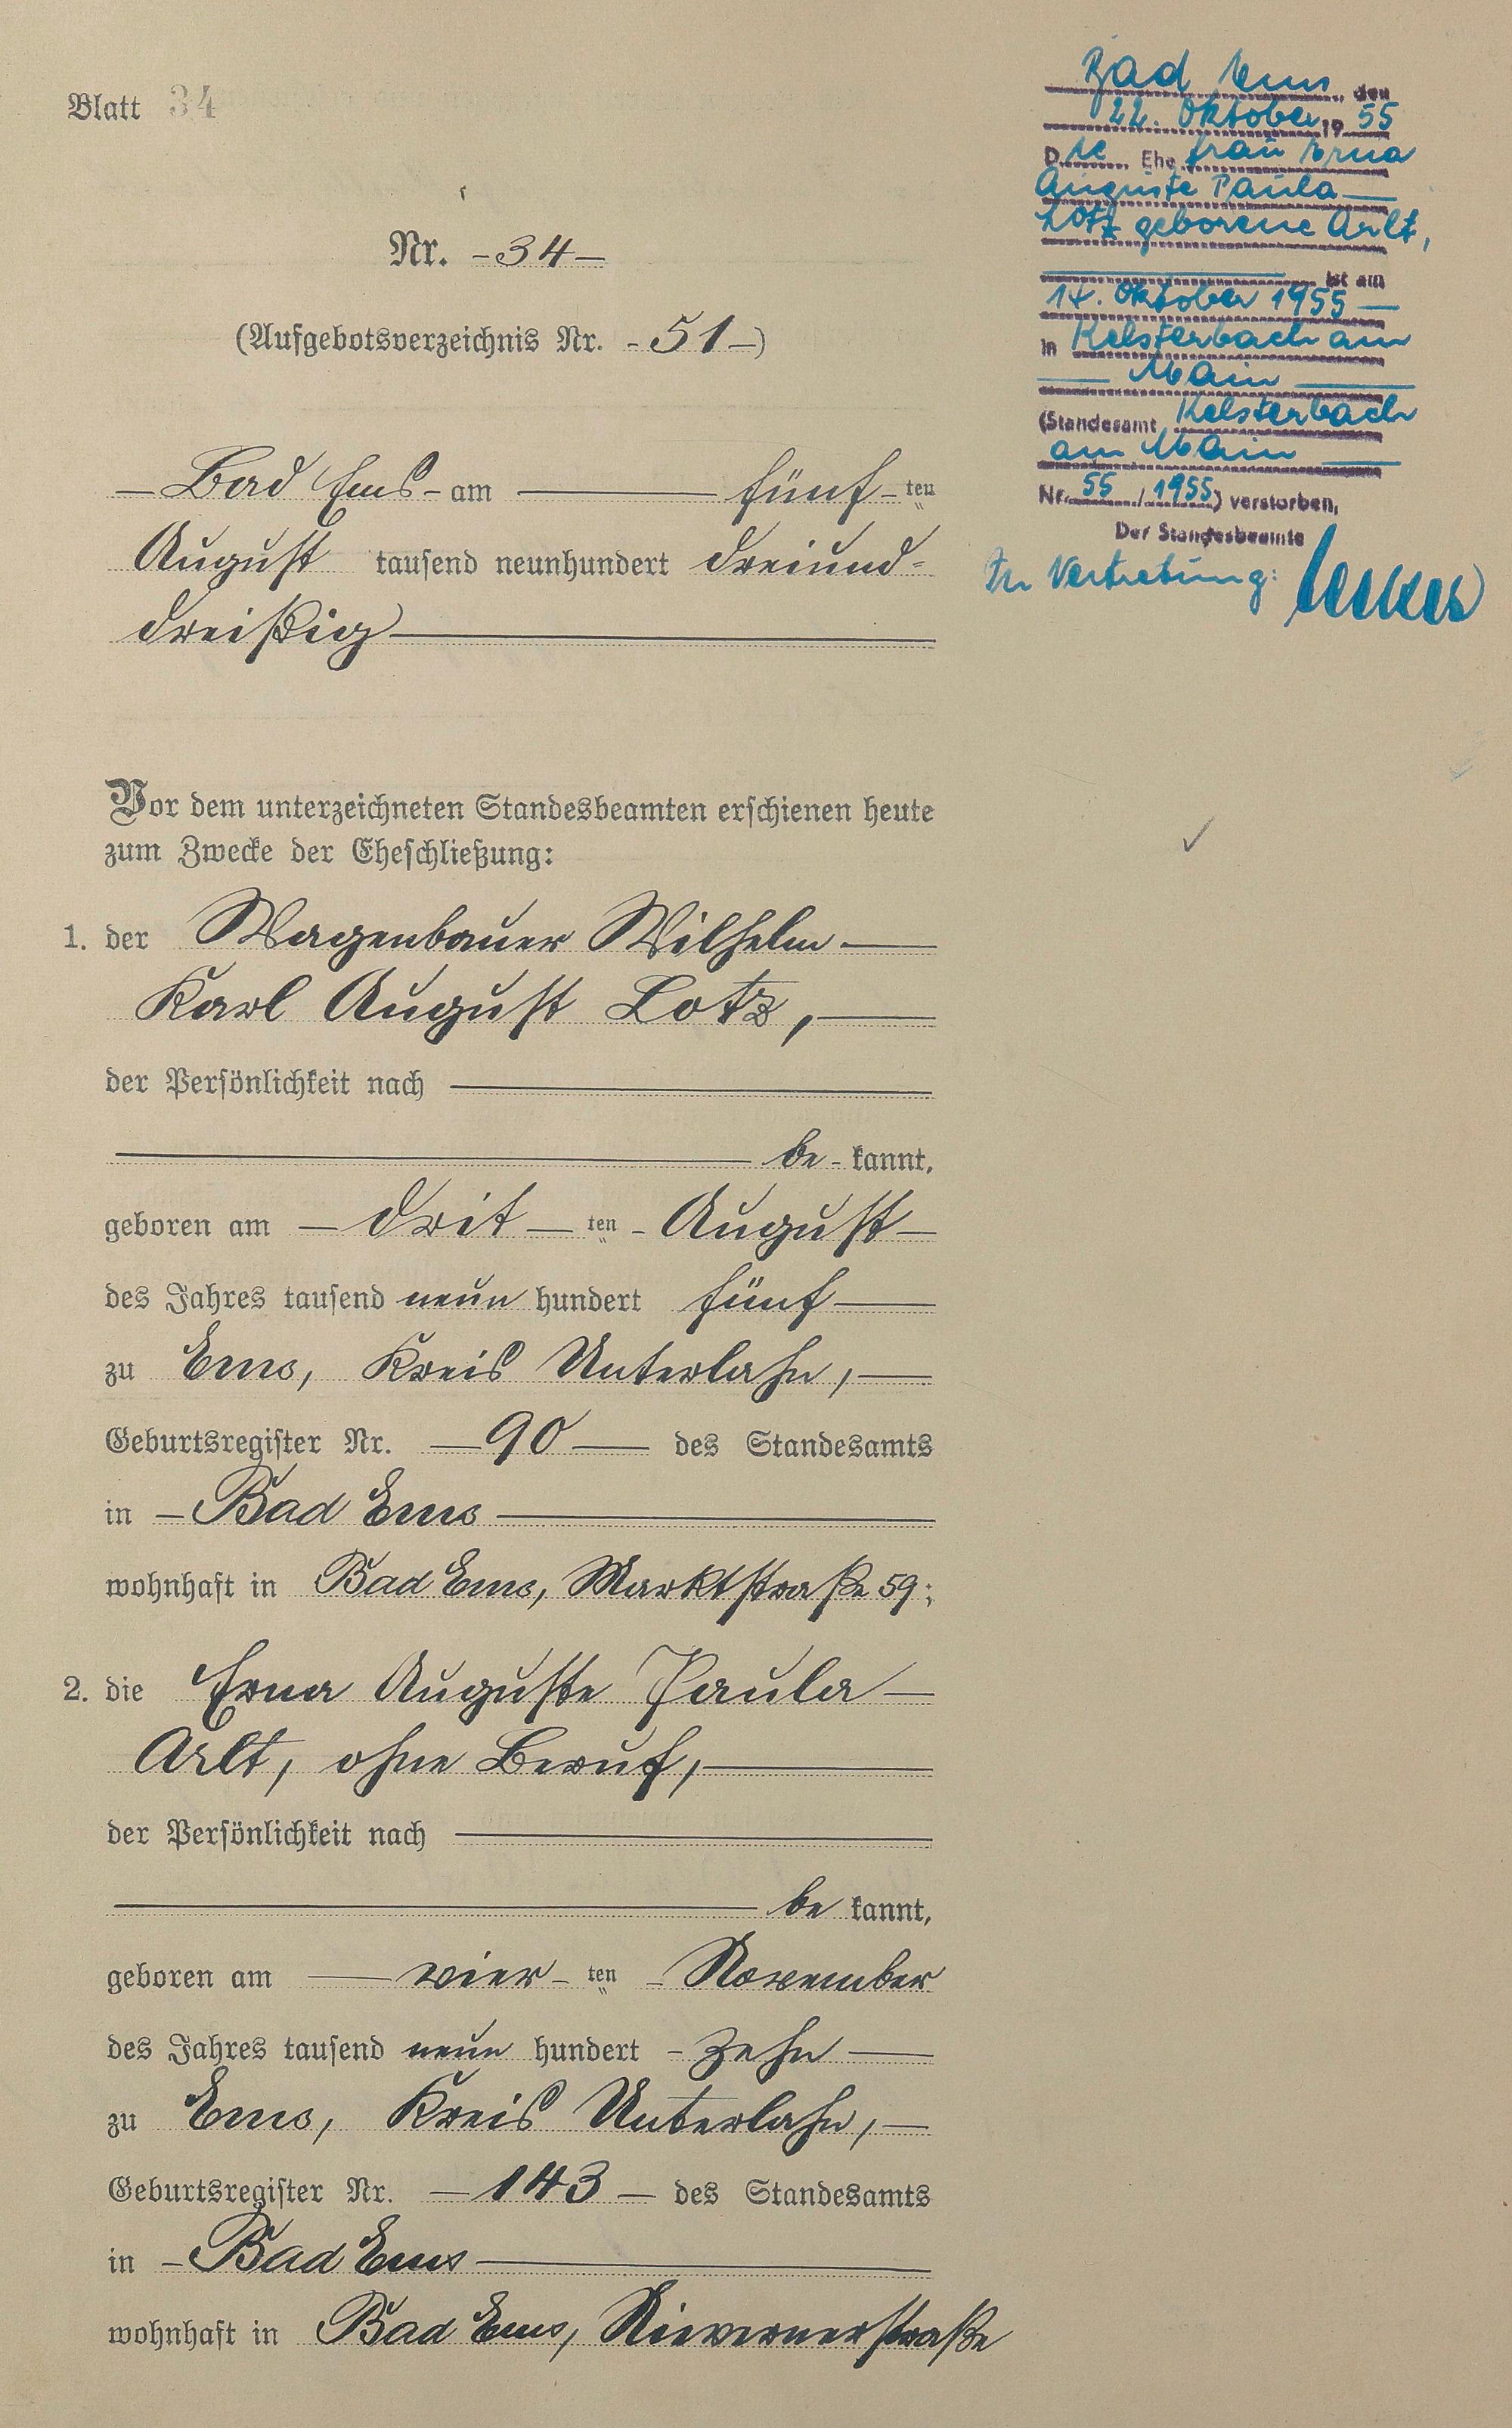 Blatt 34
Nr. - 34 -
(Aufgebotsverzeichnis Nr. - 51 -)
- Bad Ems - am fünf ten
August tausend neunhundert dreiund-
dreißig
Vor dem unterzeichneten Standesbeamten erschienen heute
zum Zwecke der Eheschließung:
1. der Wagenbauer Wilhelm
Karl August Lotz,
der Persönlichkeit nach
be- kannt,
geboren am - drit - ten - August -
des Jahres tausend neun hundert fünf
zu Ems, Kreis Unterlahn,
Geburtsregister Nr. - 90 - des Standesamts
in - Bad Ems
wohnhaft in Bad Ems, Marktstraße 59;
2. die Erna Auguste Paula -
Arlt, ohne Beruf,
der Persönlichkeit nach
be kannt,
geboren am vier - ten - November
des Jahres tausend neun hundert - zehn
zu Ems, Kreis Unterlahn, -
Geburtsregister Nr. - 143 - des Standesamts
in - Bad Ems
wohnhaft in Bad Ems, Nievernerstraße
Bad Ems, den
22. Oktober 19 55
Die Ehefrau Erna
Auguste Paula
Lotz geborene Arlt,
ist am
14. Oktober 1955
in Kelsterbach am
Main
(Standesamt Kelsterbach
am Main
Nr. 55 / 1955) verstorben.
Der Standesbeamte
In Vertretung: